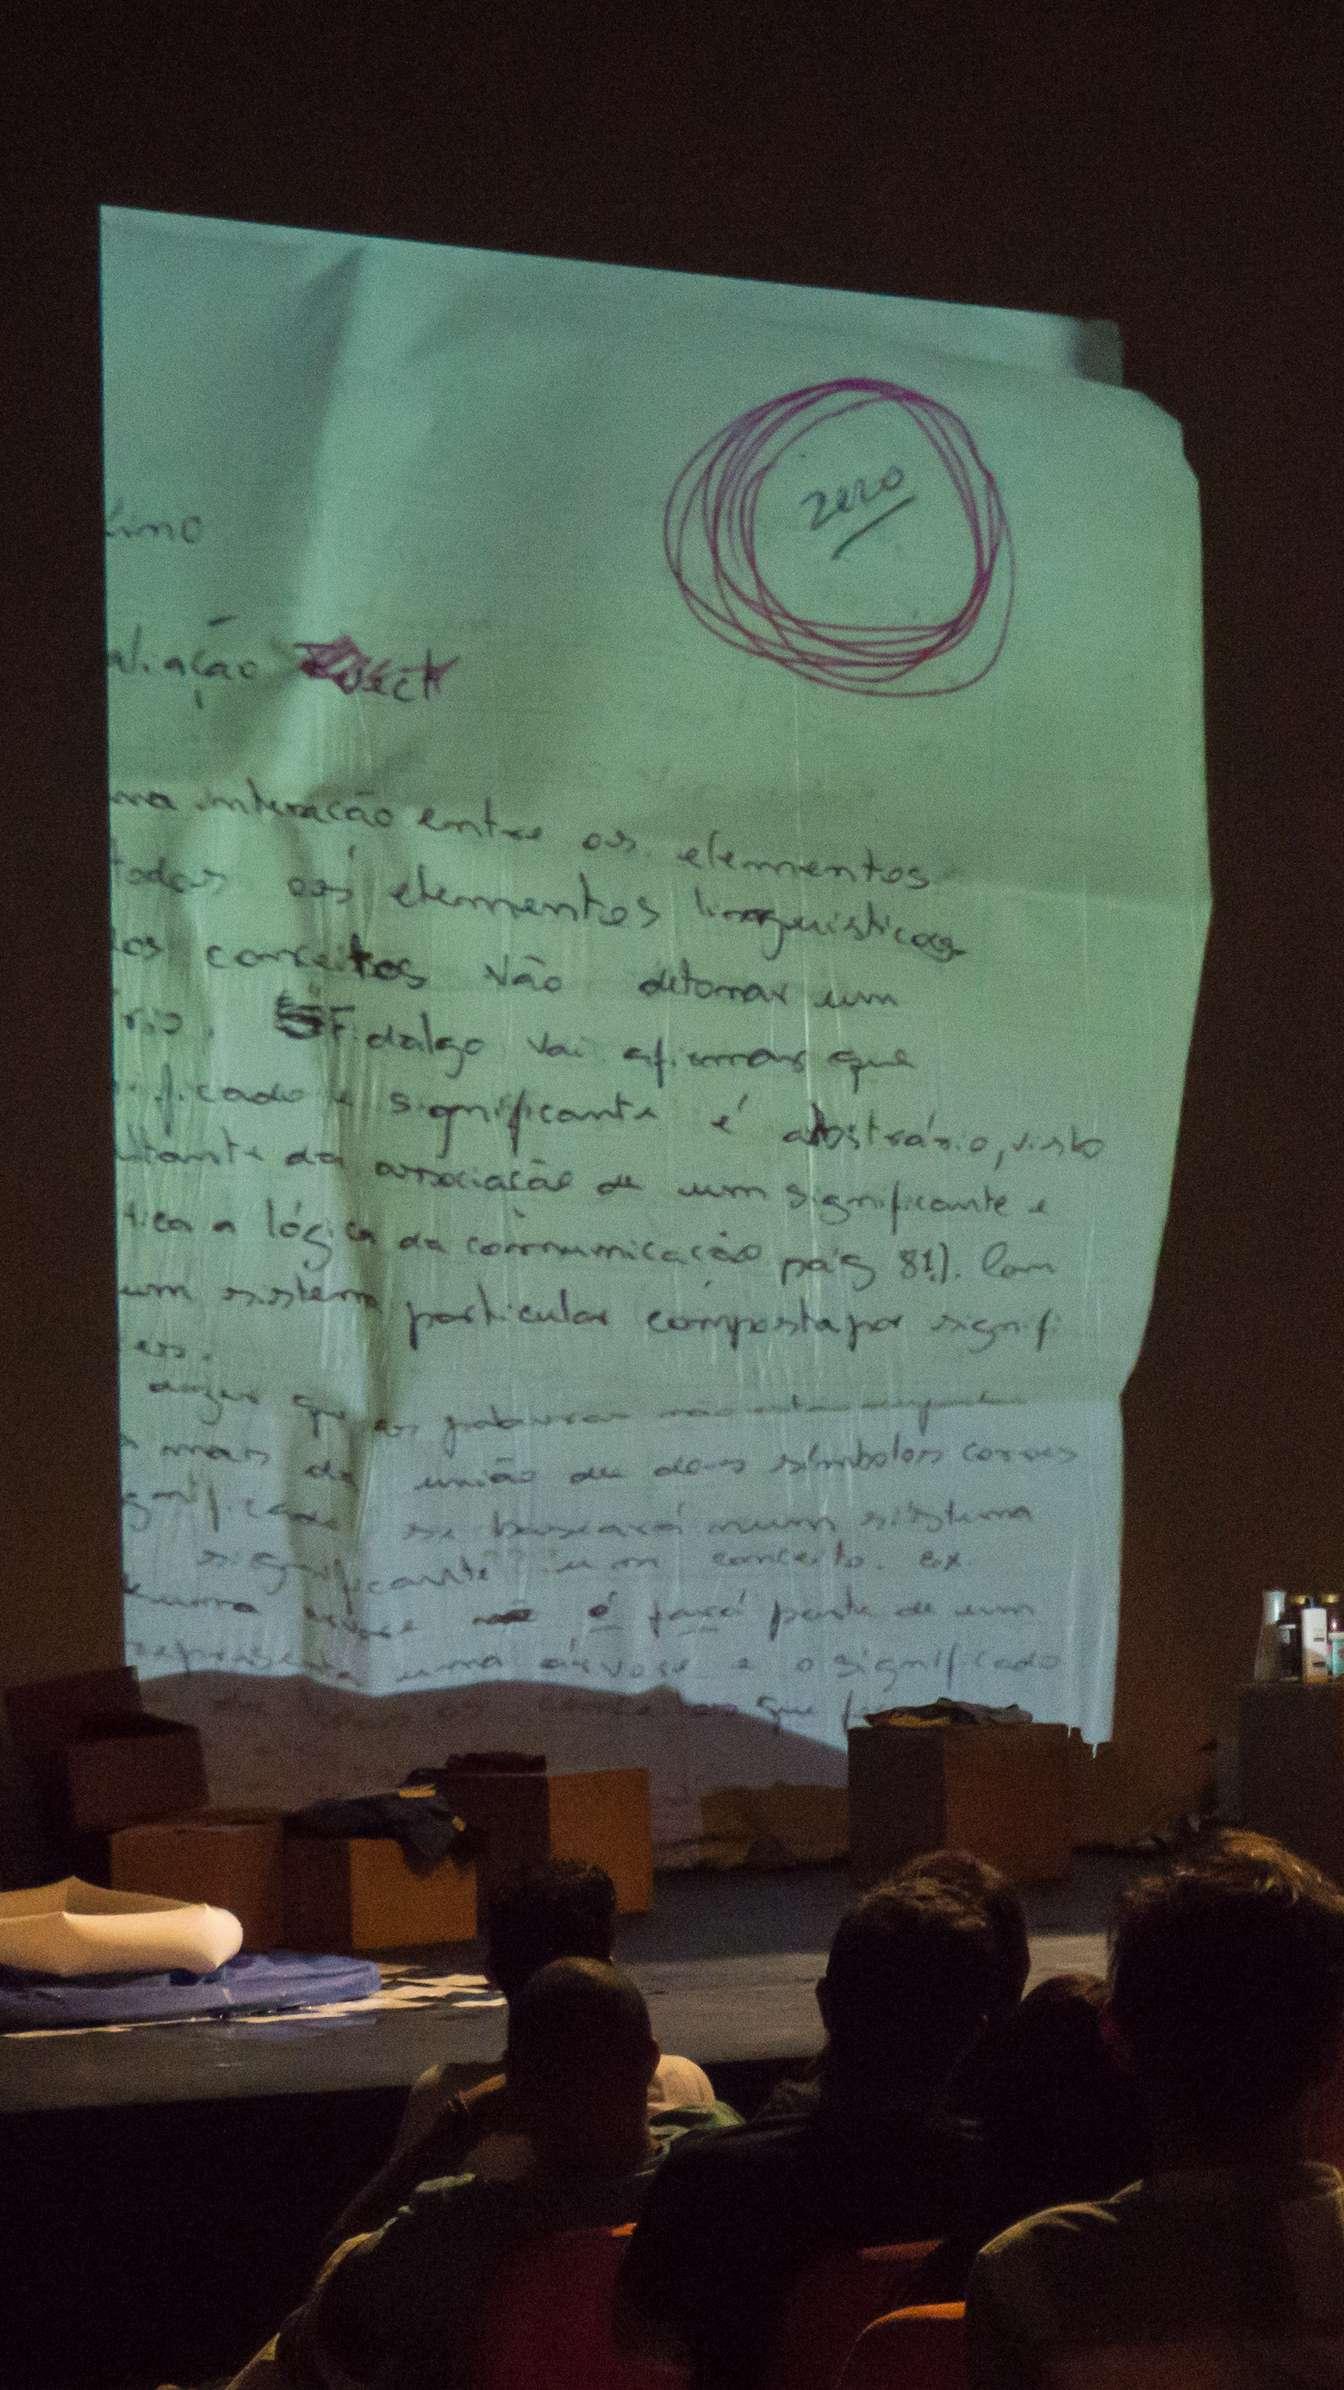 zero
ma interação entre os elementos
todos os elementos linguisticos
os conceitos vão detonar um
rio. Fidalgo vai afirmar que
ificado e significante é abstrário, visto
ltante da associação de um significante e
tica a lógica da comunicação pág 81). Com
um sistema particular composta por signifi
es.
dizer que as palavras não
mais da união de dois símbolos
gnificado se buscará num sistema
significante um conceito. ex
uma árvore é fará parte de um
representa uma árvore e o significado
que